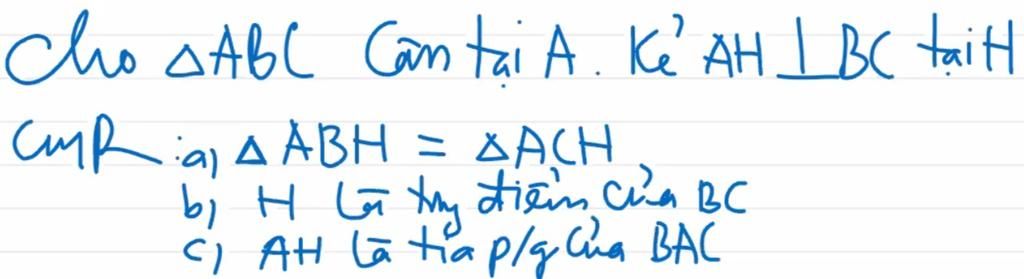 Cho △ABC Cân tại A. Kẻ AH ⊥ BC tại H
CMR : a) △ABH = △ACH
b) H là trg điểm của BC
c) AH là tia p/g của BAC